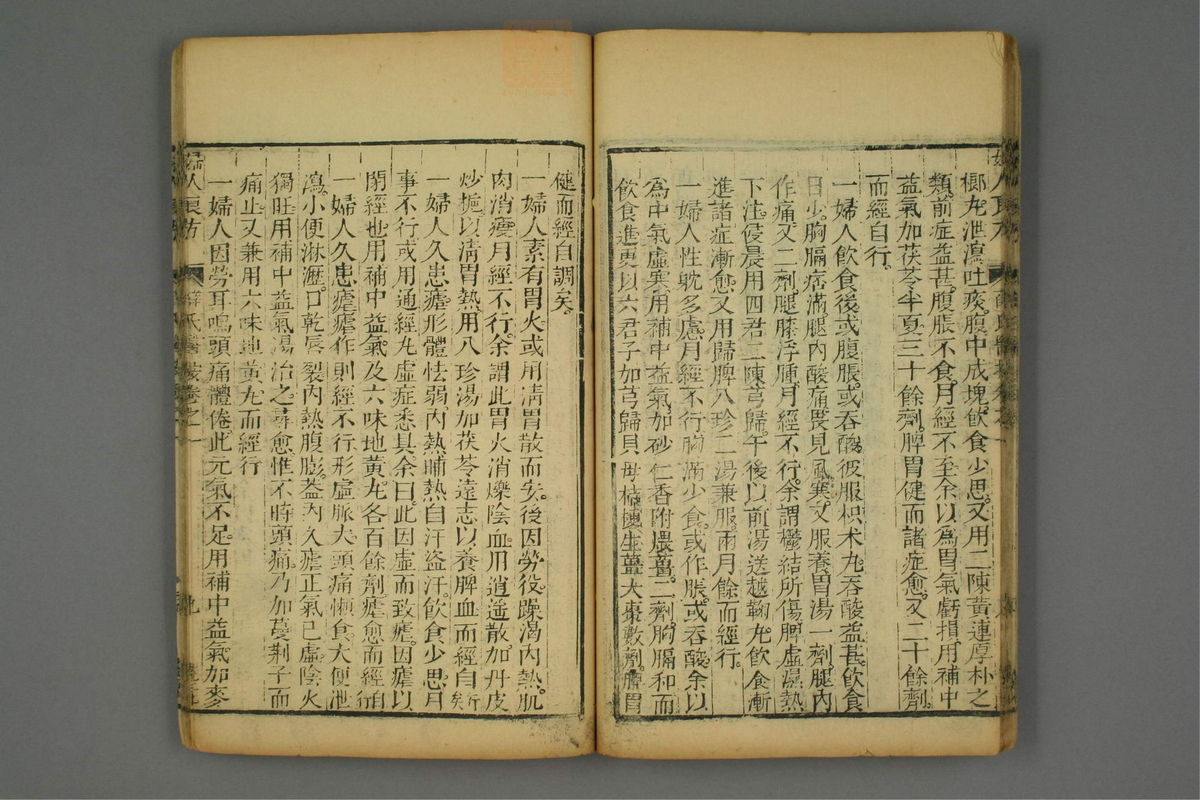 榔丸泄瀉吐痰腹中成塊飲食少思又用二陳黃連厚朴之
類前症益甚腹脹不食月經不至余以爲胃氣虧損用補中
益氣加茯苓半夏三十餘劑脾胃健而諸症愈又二十餘劑
而經自行
一婦人飲食後或腹脹或吞酸彼服枳朮丸吞酸益甚飲食
日少胸膈痞滿腿內酸痛畏見風寒又服養胃湯一劑腿內
作痛又二劑腿膝浮腫月經不行余謂欝結所傷脾虛濕熱
下注侵晨用四君二陳芎歸午後以前湯送越鞠丸飲食漸
進諸症漸愈又用歸脾八珍二湯兼服兩月餘而經行
一婦人性躭多慮月經不行胸滿少食或作脹或吞酸余以
爲中氣虛寒用補中益氣加砂仁香附煨薑二劑胸膈和而
飲食進更以六君子加芎歸貝母桔梗生薑大棗數劑脾胃
健而經自調矣
一婦人素有胃火或用清胃散而安後因勞役躁渴內熱肌
肉消瘦月經不行余謂此胃火消爍陰血用逍遙散加丹皮
炒梔以清胃熱用八珍湯加茯苓遠志以養脾血而經自行矣
一婦人久患瘧形體怯弱內熱晡熱自汗盜汗飲食少思月
事不行或用通經丸虛症悉具余曰此因虛而致瘧因瘧以
閉經也用補中益氣及六味地黃丸各百餘劑瘧愈而經自行
一婦人久患瘧瘧作則經不行形虛脈大頭痛懶食大便泄
瀉小便淋瀝口乾唇裂內熱腹膨蓋內久瘧正氣已虛陰火
獨旺用補中益氣湯治之尋愈惟不時頭痛乃加蔓荆子而
痛止又兼用六味地黃丸而經行
一婦人因勞耳鳴頭痛體倦此元氣不足用補中益氣加麥
婦人良方
薛氏醫案卷之一
九